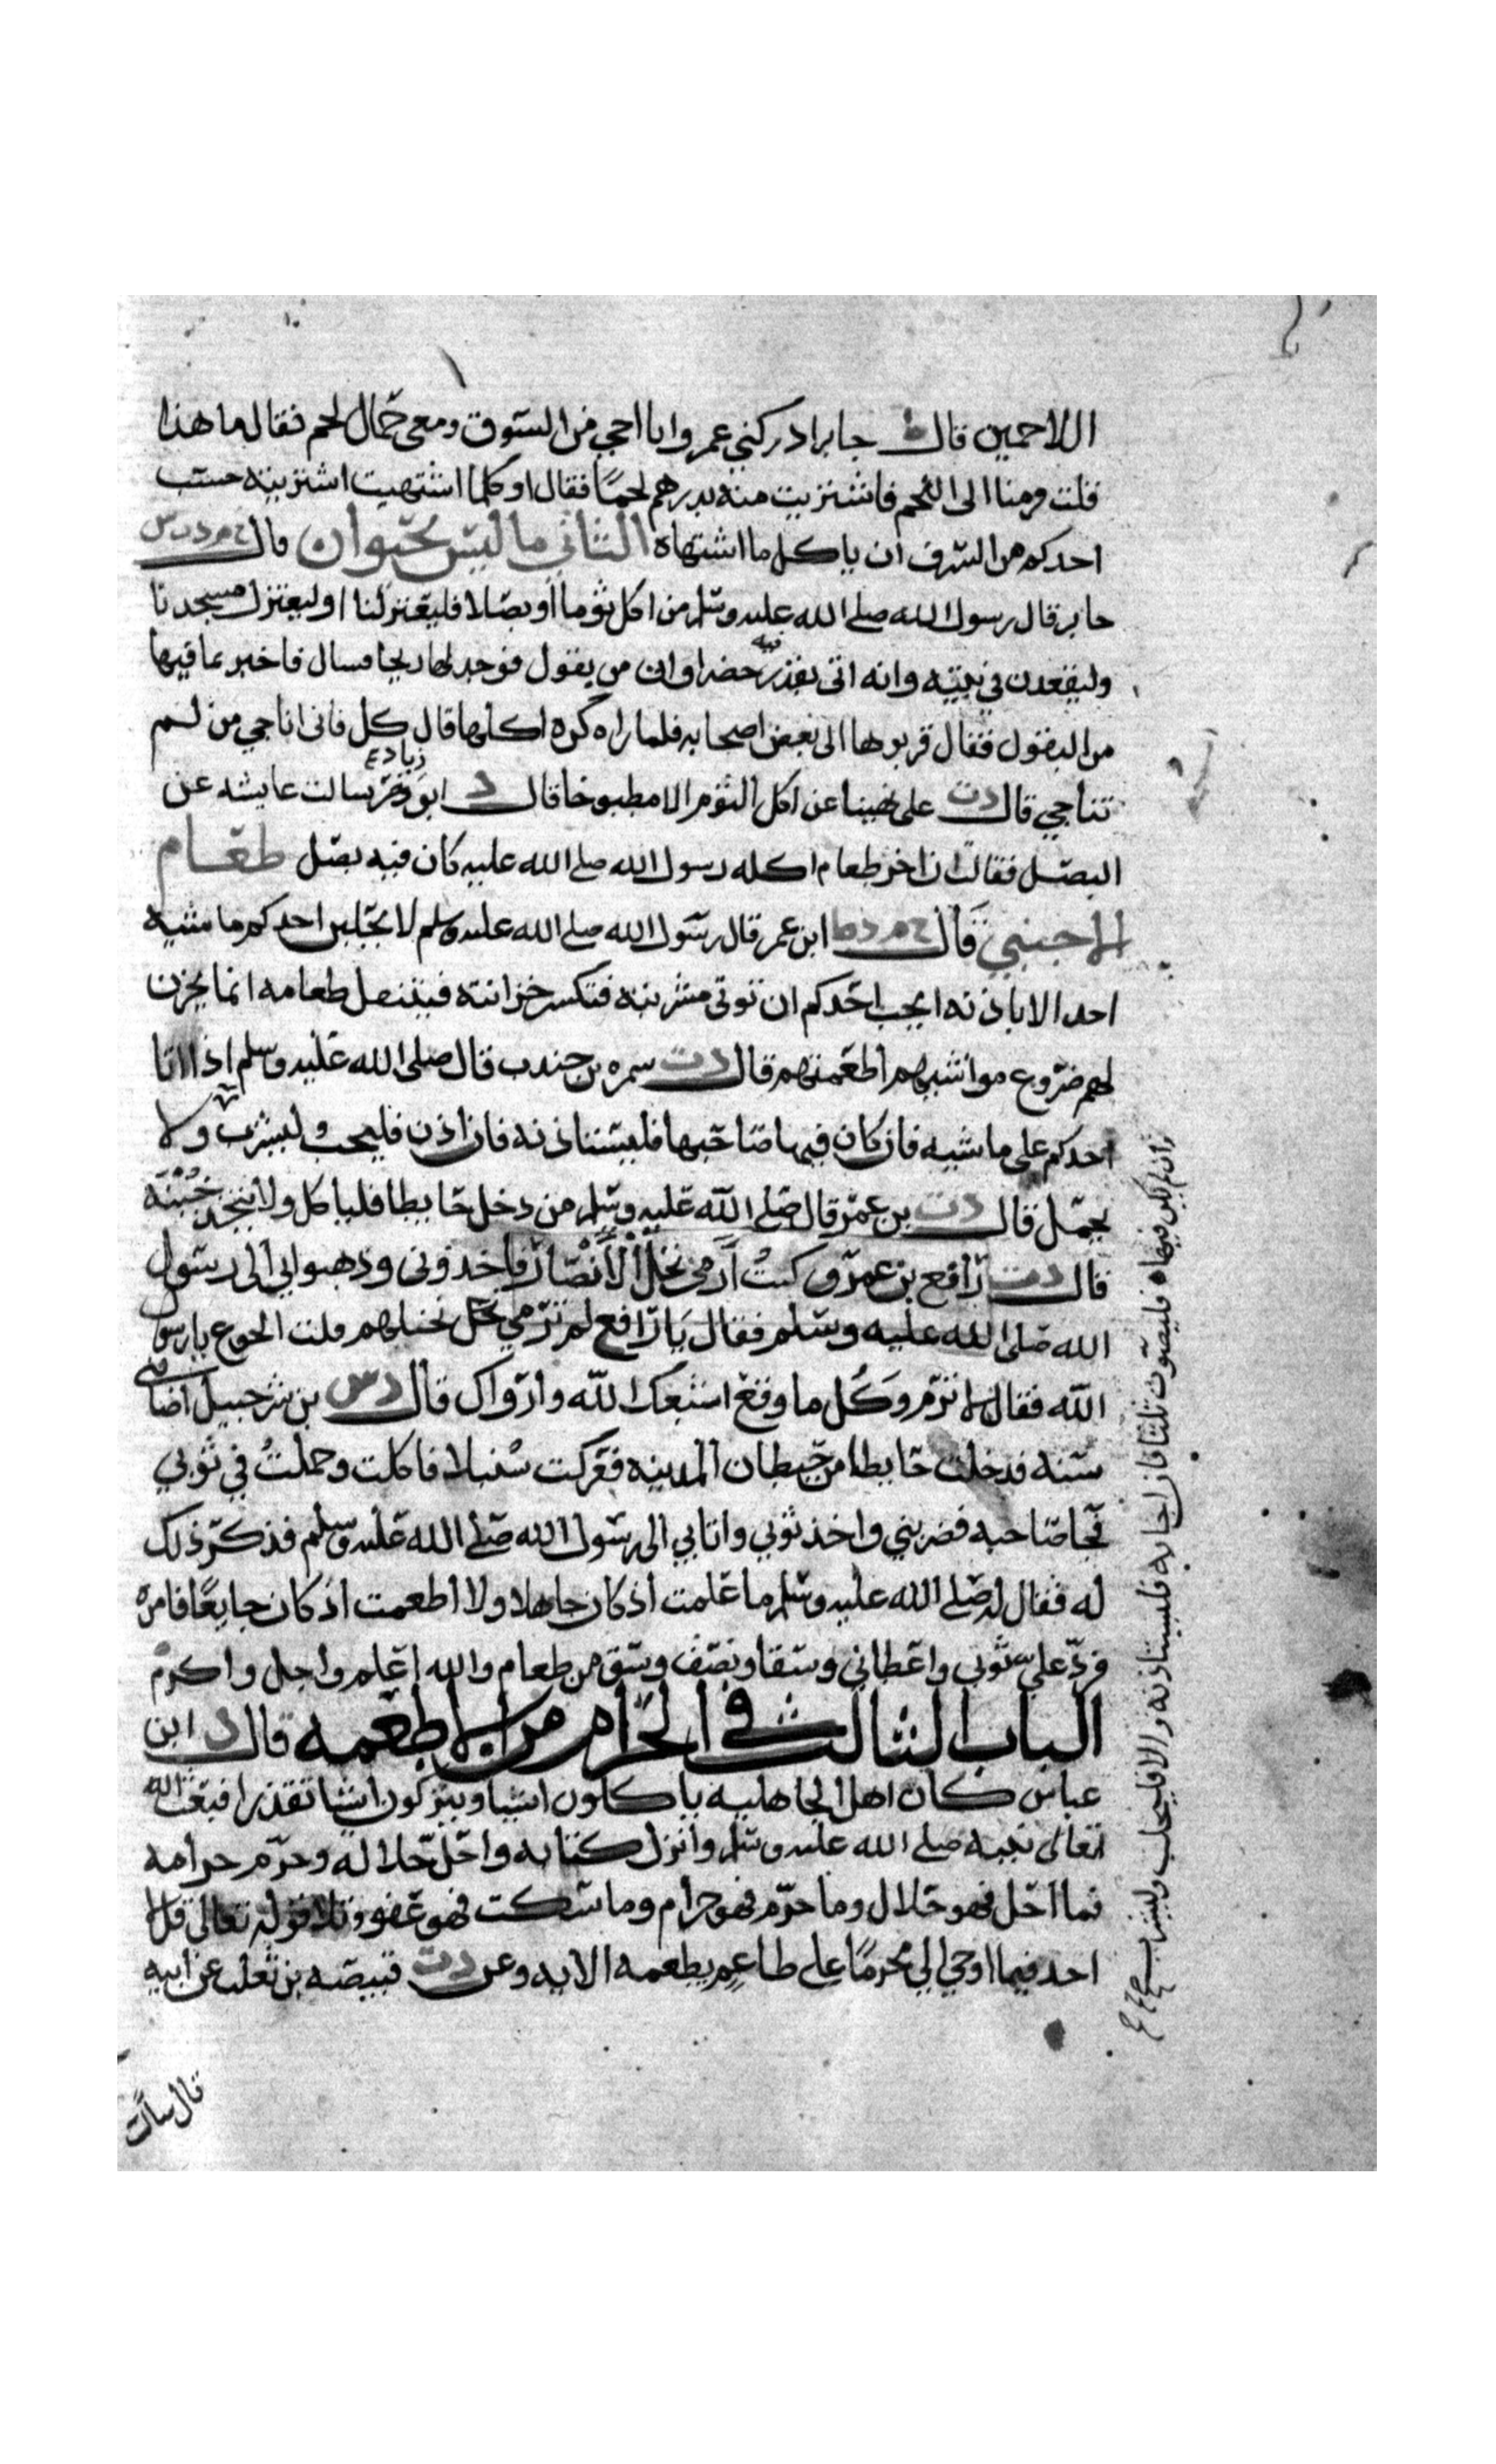 اللاحمين قال ط جابر ادركني عمر وانا اجي من السوق ومعي حمال لحم فقال ما هذا
قلت قرمنا الى اللحم فاشتريت منه بدرهم لحمًا فقال او كلما اشتهيت اشتريته حسب
احدكم من السرف ان ياكل ما اشتهاه الثاني ما ليس بحيوان قال خ م د ت س
جابر قال رسول الله صلى الله عليه وسلم من اكل ثوما أو بصلا فليعتزلنا او ليعتزل مسجدنا
وليقعدن في بيته وانه اتى بقدر فيه خضراوات من بقول فوجد لها ريحا فسال فاخبر بما فيها
من البقول فقال قربوها الى بعض اصحابه فلما راه كره اكلها قال كل فاني اناجي من لم
تناجي قال د ت على نهينا عن اكل الثوم الا مطبوخا قال د ابو زياد سالت عايشه عن
البصل فقالت ان اخر طعام اكله رسول الله صلى الله عليه كان فيه بصل طعام
الاجنبي قال خ م د ط ابن عمر قال رسول الله صلى الله عليه وسلم لا يحلبن احدكم ماشية
احد الا باذنه ايحب احدكم ان توتى مشربته فتكسر خزانته فينتقل طعامه انما يخزن
لهم ضروع مواشيهم اطعمتهم قال د ت سمره بن جندب قال صلى الله عليه وسلم اذا اتا
احدكم على ماشيه فان كان فيها صاحبها فليستاذنه فان اذن فليحلب وليشرب ولا
يحمل قال د ت بن عمر قال صلى الله عليه وسلم من دخل حايطا فلياكل ولا يتخذ خبنة
قال د ت رافع بن عمرو كنت أرمي نخل الأنصار فاخذوني وذهبوا بي الى رسول
الله صلى الله عليه وسلم فقال يا رافع لم ترمي نخلهم قلت الجوع يا رسول
الله فقال لا ترم وكُل ما وقع اشبعك الله وارواك قال د س بن شرحبيل اصابتني
سنه فدخلت حايطا من حيطان المدينه ففركت سُنبلا فاكلت وحملتُ في ثوبي
فجا صاحبه فضربني واخذ ثوبي واتا بي الى رسول الله صلى الله عليه وسلم فذكر ذلك
له فقال له صلى الله عليه وسلم ما علمت اذ كان جاهلا ولا اطعمت اذ كان جايعًا فامره
فردّ عليّ ثوبي واعطاني وسقا او نصف وسق من طعام والله اعلم واجل واكرم
الباب الثالث في الحرام من الاطعمه قال د ابن
عباس كان اهل الجاهلية ياكلون اشيا ويتركون اشيا تقذرا فبعث الله
تعالى نبيه صلى الله عليه وسلم وانزل كتابه واحلّ حلاله وحرّم حرامه
فما احل فهو حلال وما حرّم فهو حرام وما سكت فهو عفو وتلا قوله تعالى قل لا
اجد فيما اوحي الي محرمًا على طاعم يطعمه الايه وعن د ت قبيصه بن ثعلب عن ابيه
قال سالت
وان لم يكن فيها فليصوت ثلثا فان اجابه فليستاذنه والا فليحلب وليشرب